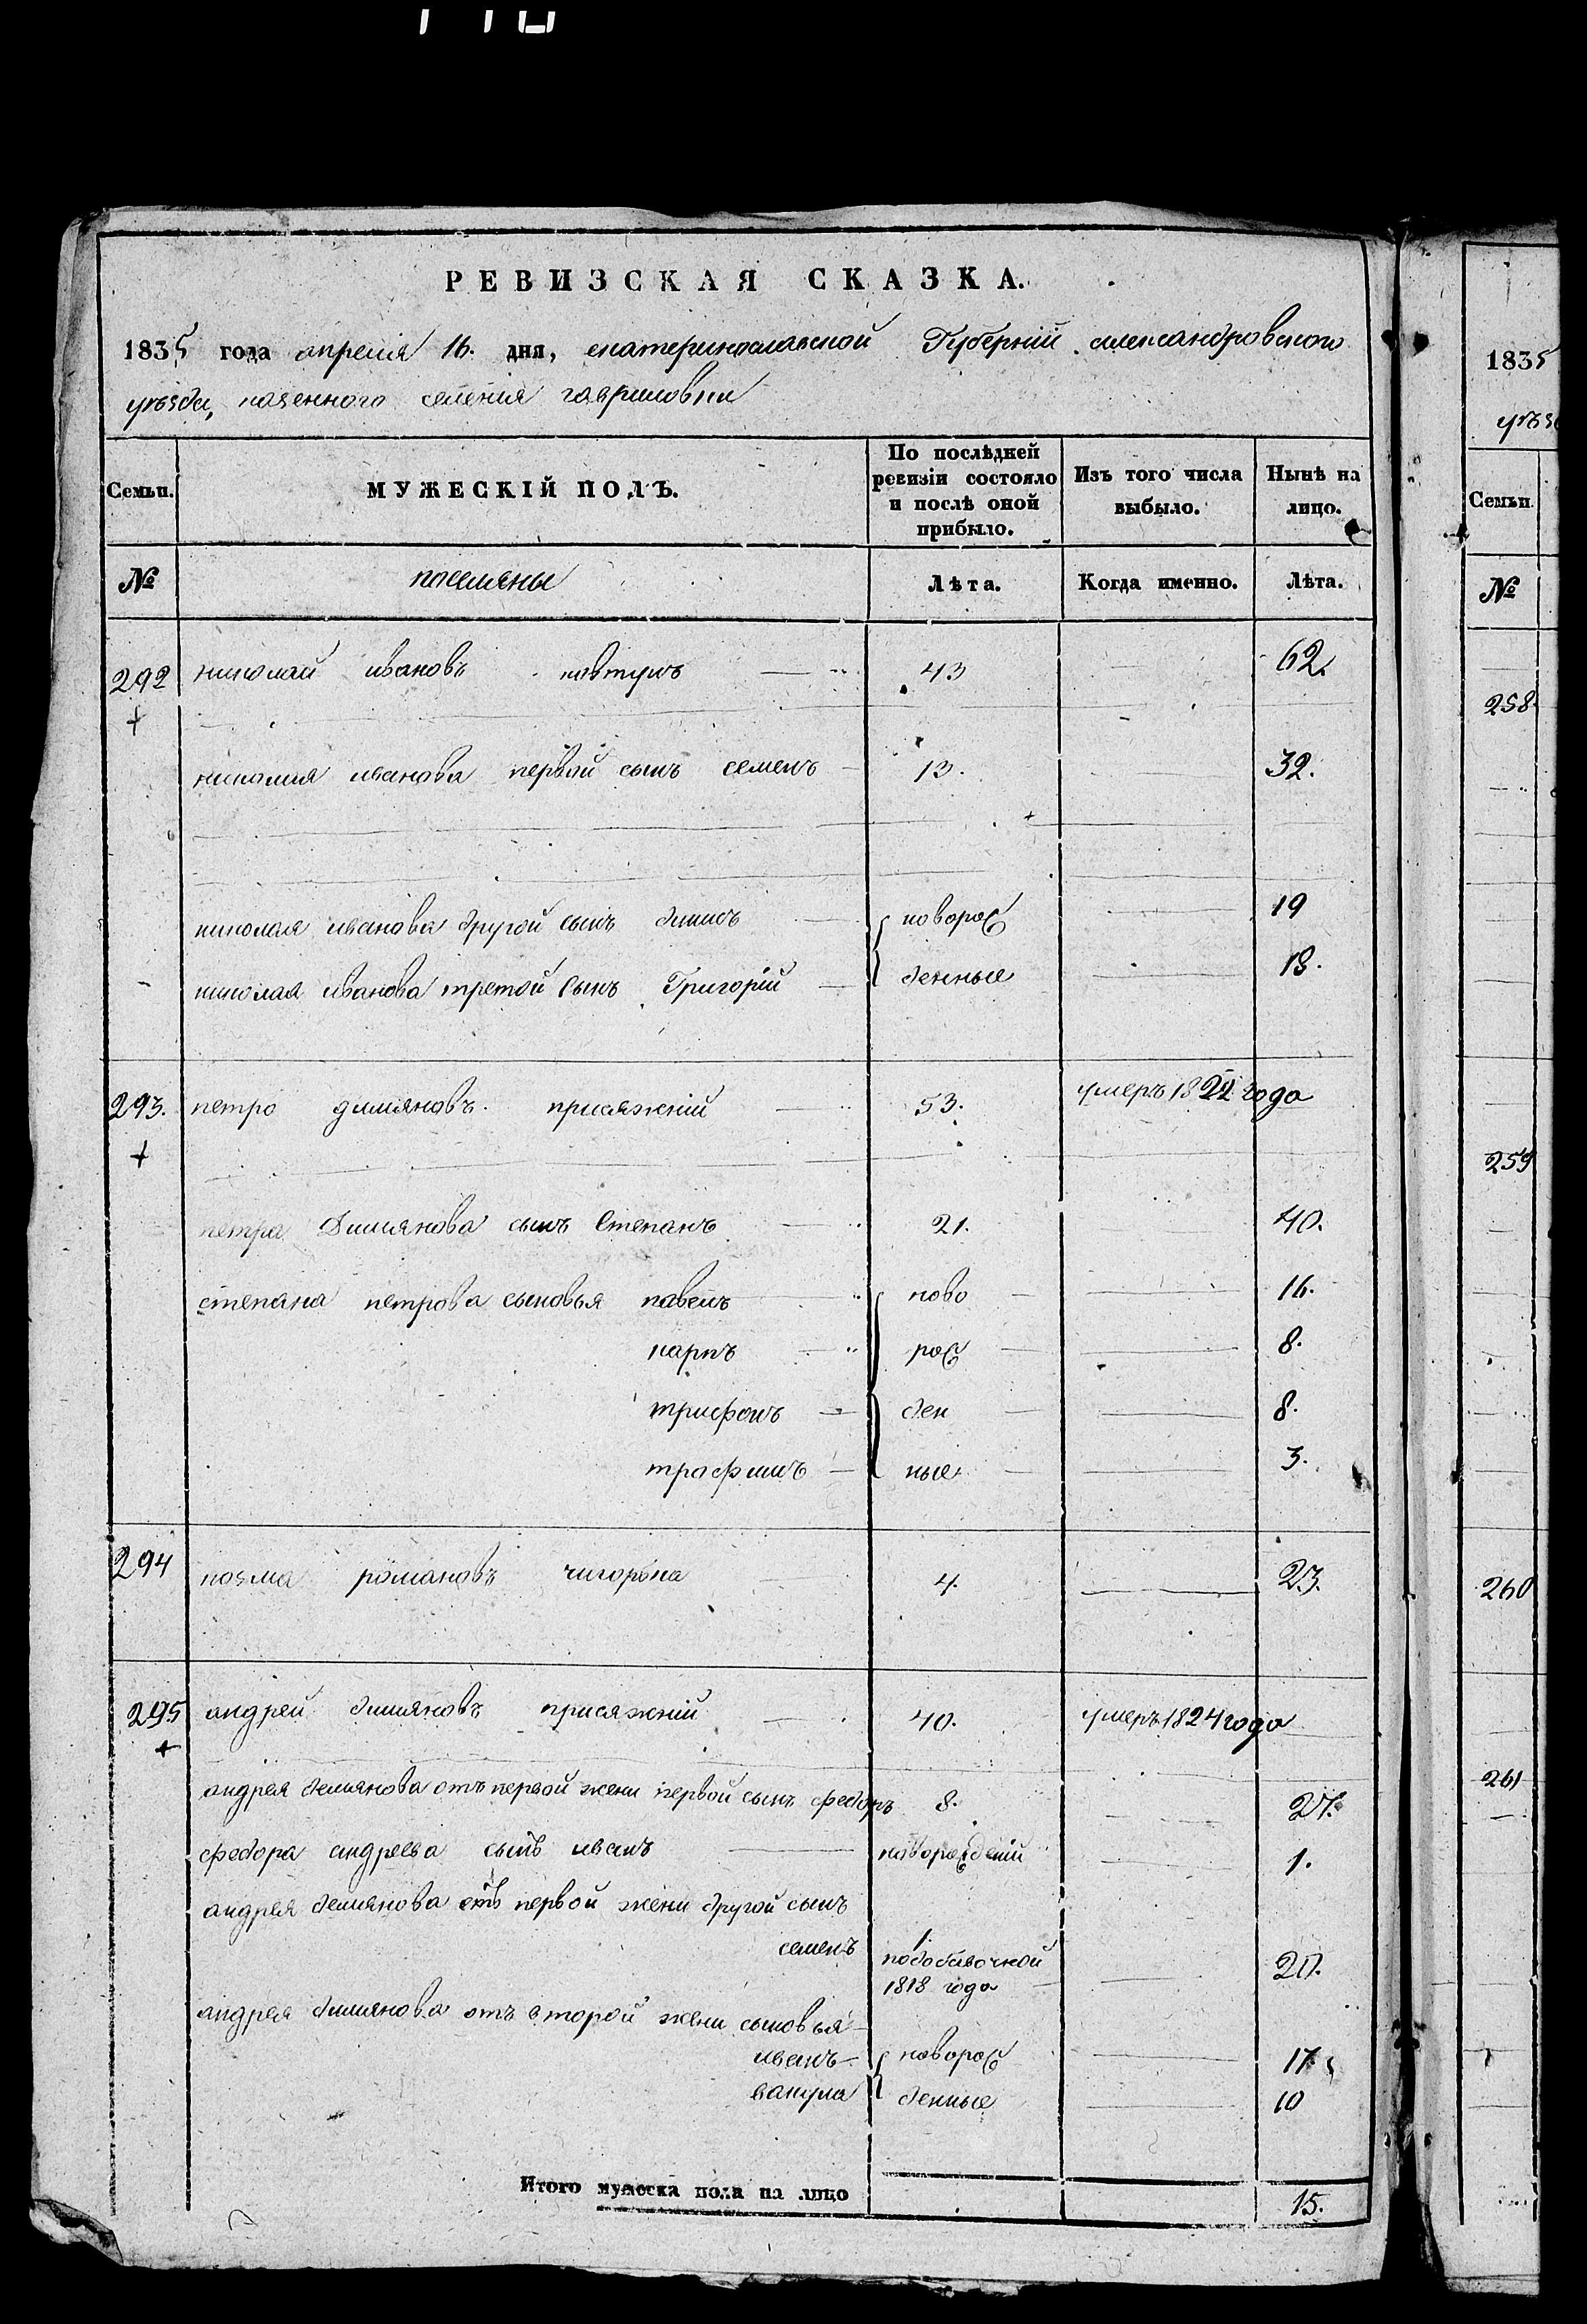 РЕВИЗСКАЯ СКАЗКА.
1835 года апреля 16. дня, екатеринославской Губерніи александровского
уезда, казенного селения гавриловки
Семьи.
МУЖЕСКІЙ ПОЛЪ.
По послѣдней ревизіи состояло и послѣ оной прибыло.
Изъ того числа выбыло.
Нынѣ на лицо.
№ поселяны Лѣта. Когда именно. Лѣта.
292 николай ивановъ ковтунъ 43 62.
николая иванова первой сынъ семенъ 13. 32.
николая иванова другой сынъ новорож 19
николая иванова третой сынъ Григорій денные 18.
293. петро димяновъ присяжній 53. умеръ 1822 года
петра Димянова сынъ Степанъ 21. 40.
степана петрова сыновья павелъ ново 16.
карпъ рож 8.
трифонъ ден 8.
трофимъ ные 3.
294 козма романовъ 4. 23.
295 андрей димяновъ присяжній 40. умеръ 1824 года
андрея демянова отъ первой жени первой сынъ федоръ 8. 27.
федора андреева сынъ иванъ новорожденій 1.
андрея демянова отъ первой жени другой сынъ
семенъ 1. подобавочной 1818 года 20.
андрея димянова отъ второй жени сыновья
иванъ новорож 17.
вакула денные 10
Итого мужеска пола на лицо 15.
1835
Семьи.
№
258.
259
260
261